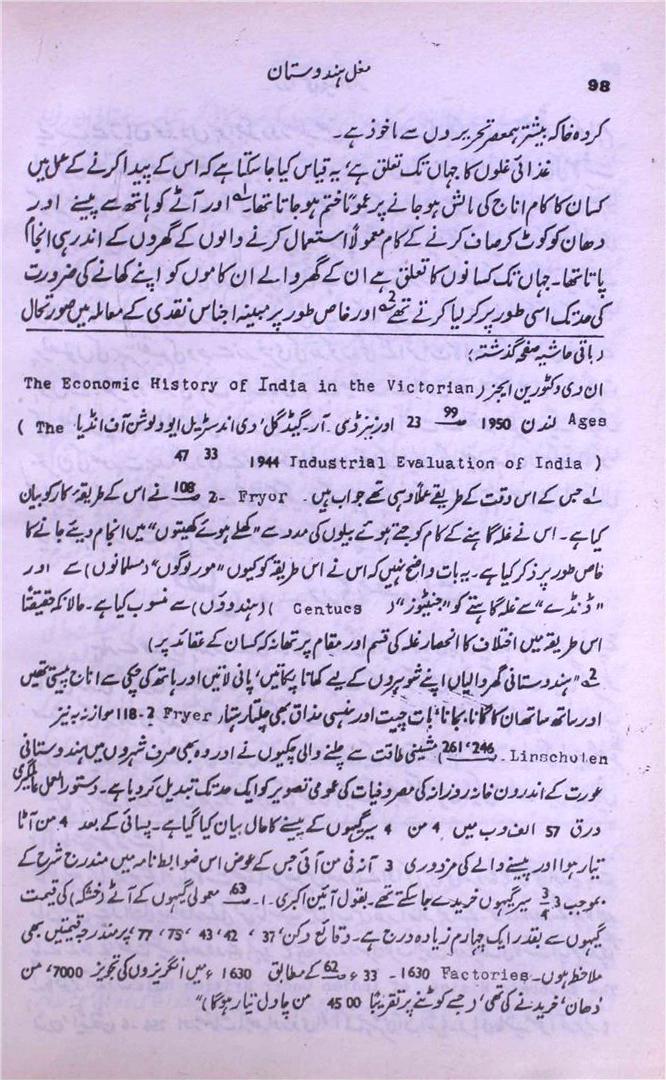 مغل ہندوستان
98
کردہ خاکہ بیشتر ہمعصر تحریروں سے ماخوذ ہے۔
غذائی غلوں کا جہاں تک تعلق ہے، یہ قیاس کیا جا سکتا ہے کہ اس کے پیدا کرنے کے عمل میں
کسان کا کام اناج کی مالش ہو جانے پر عموماً ختم ہو جاتا تھا۔ 1؎ اور آٹے کو ہاتھ سے پیسنے اور
دھان کو کوٹ کر صاف کرنے کے کام معمولاً استعمال کرنے والوں کے گھروں کے اندر ہی انجام
پاتا تھا۔ جہاں تک کسانوں کا تعلق ہے ان کے گھر والے ان کاموں کو اپنے کھانے کی ضرورت
کی حد تک اسی طور پر کر لیا کرتے تھے 2؎ اور خاص طور پر مبینہ اجناس نقدی کے معاملہ میں صورتحال
(باقی حاشیہ صفحہ گذشتہ)
ان دی وکٹورین ایجز (The Economic History of India in the Victorian
Ages لندن 1950 ص 99 23 اور نیز ڈی۔ آر۔ گیڈگل، دی انڈسٹریل ایوولوشن آف انڈیا (The
Industrial Evaluation of India ) 1944 33 47
1؎ جس کے اس وقت کے طریقے عملاً وہی تھے جو اب ہیں۔ Fryor -2 ص 108 نے اس کے طریقۂ کار کو بیان
کیا ہے۔ اس نے غلہ گاہنے کے کام کو جتے ہوئے بیلوں کی مدد سے "کھلے ہوئے کھیتوں" میں انجام دیئے جانے کا
خاص طور پر ذکر کیا ہے۔ یہ بات واضح نہیں کہ اس نے اس طریقہ کو کیوں "مور لوگوں" (مسلمانوں) سے اور
"ڈنڈے" سے غلہ گاہنے کو "جنیٹوز" ( Centucs ) (ہندوؤں) سے منسوب کیا ہے۔ حالانکہ حقیقتاً
اس طریقہ میں اختلاف کا انحصار غلہ کی قسم اور مقام پر تھا نہ کہ کسان کے عقائد پر)
2؎ "ہندوستانی گھر والیاں اپنے شوہروں کے لیے کھانا پکاتیں، پانی لاتیں اور ہاتھ کی چکی سے اناج پیستی تھیں
اور ساتھ ساتھ ان کا گانا، بجانا، بات چیت اور ہنسی مذاق بھی چلتا رہتا۔ Fryer 2-118 موازنہ بہ نیز
Linschoten۔ 246، 261) مشینی طاقت سے چلنے والی چکیوں نے اور وہ بھی صرف شہروں میں ہندوستانی
عورت کے اندرون خانہ روزانہ کی مصروفیات کی عمومی تصویر کو ایک حد تک تبدیل کر دیا ہے۔ دستور العمل عالمگیری
ورق 57 الف وب میں 4 من 4 سیر گیہوں کے پیسنے کا حال بیان کیا گیا ہے۔ پسائی کے بعد 4 من آٹا
تیار ہوا اور پیسنے والے کی مزدوری 3 آنہ فی من آئی جس کے عوض اس ضوابط نامہ میں مندرج شرح کے
بموجب 3 3/4 سیر گیہوں خریدے جا سکتے تھے۔ بقول آئین اکبری۔ 1۔ ص 63 معمولی گیہوں کے آٹے (خشکہ) کی قیمت
گیہوں سے بقدر ایک چہارم زیادہ درج ہے۔ وقائع دکن، 37، 42، 43، 75، 77، پر مندرجہ قیمتیں بھی
ملاحظہ ہوں۔ Factories 1630- 33 ء ص 62 کے مطابق 1630ء میں انگریزوں کی تجویز 7000، من
'دھان' خریدنے کی تھی، (جسے کوٹنے پر تقریباً 4500 من چاول تیار ہوگا)"